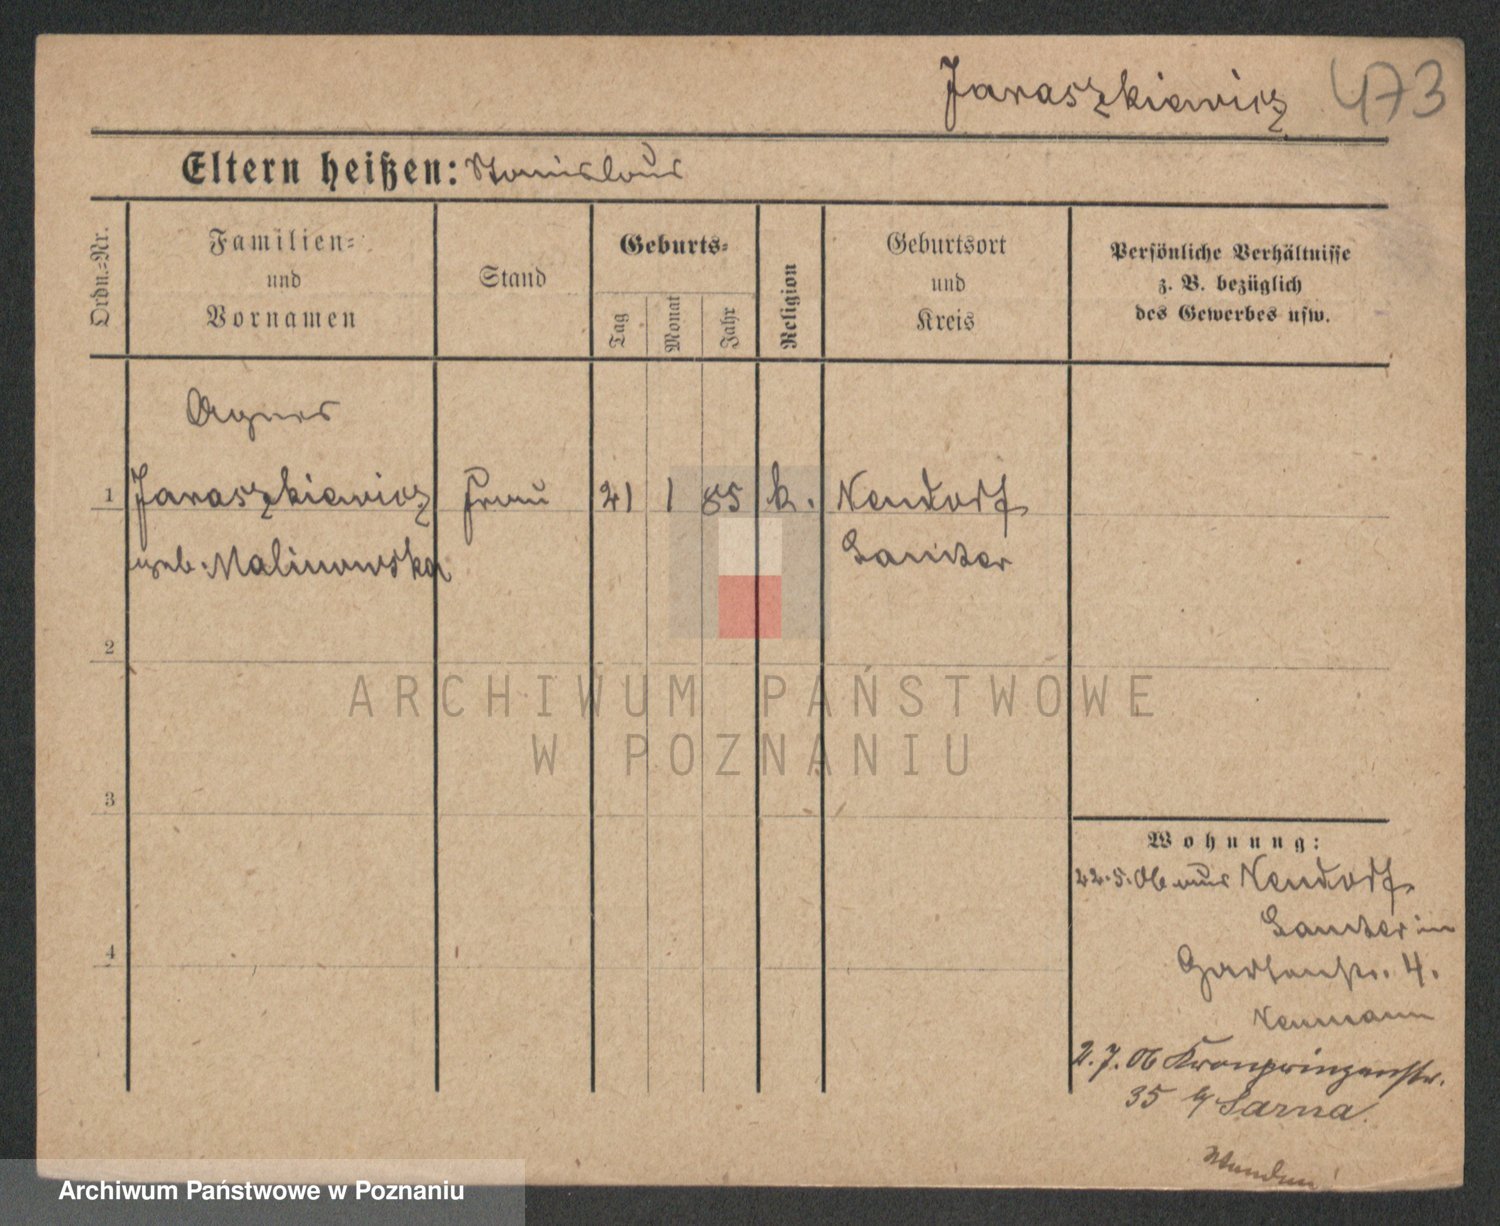 Jaraszkiewicz 473
Eltern heißen: Stanislaus
Ordn.-Nr.
Familien- und Vornamen
Stand
Geburts-
Tag
Monat
Jahr
Religion
Geburtsort und Kreis
Persönliche Verhältnisse
z. B. bezüglich
des Gewerbes usw.
Agnes
1 Jaraszkiewicz Frau 21 1 85 k. Neudorf
geb. Malinowska Samter
2
3
4
ARCHIWUM PAŃSTWOWE
W POZNANIU
Wohnung:
22.5.06 aus Neudorf
Samter in
Gartenstr. 4.
Neumann
2.7.06 Kronprinzenstr.
35 b/ Sarna
Archiwum Państwowe w Poznaniu